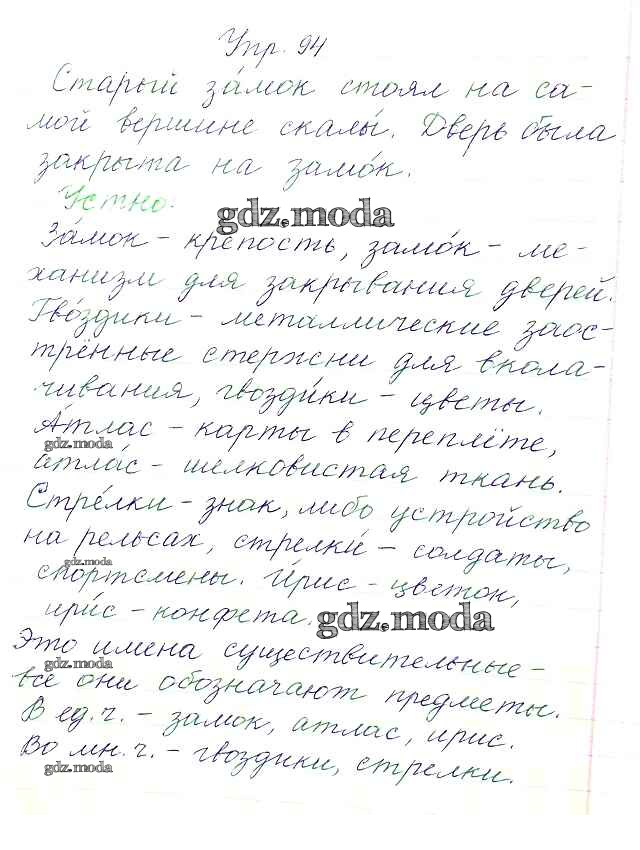 Упр. 94
Старый за́мок стоял на са-
мой вершине скалы́. Дверь была
закрыта на замо́к.
Устно.
gdz.moda
За́мок - крепость, замо́к - ме-
ханизм для закрывания дверей.
Гво́здики - металлические заос-
трённые стержни для вкола-
чивания, гвозди́ки - цветы.
А́тлас - карты в переплёте,
gdz.moda
атла́с - шелковистая ткань.
Стре́лки - знак, либо устройство
на рельсах, стрелки́ - солдаты,
gdz.moda
спортсмены. И́рис - цветок,
ири́с - конфета.
gdz.moda
Это имена существительные -
gdz.moda
все они обозначают предметы.
В ед.ч. - замок, атлас, ирис.
Во мн.ч. - гвоздики, стрелки.
gdz.moda